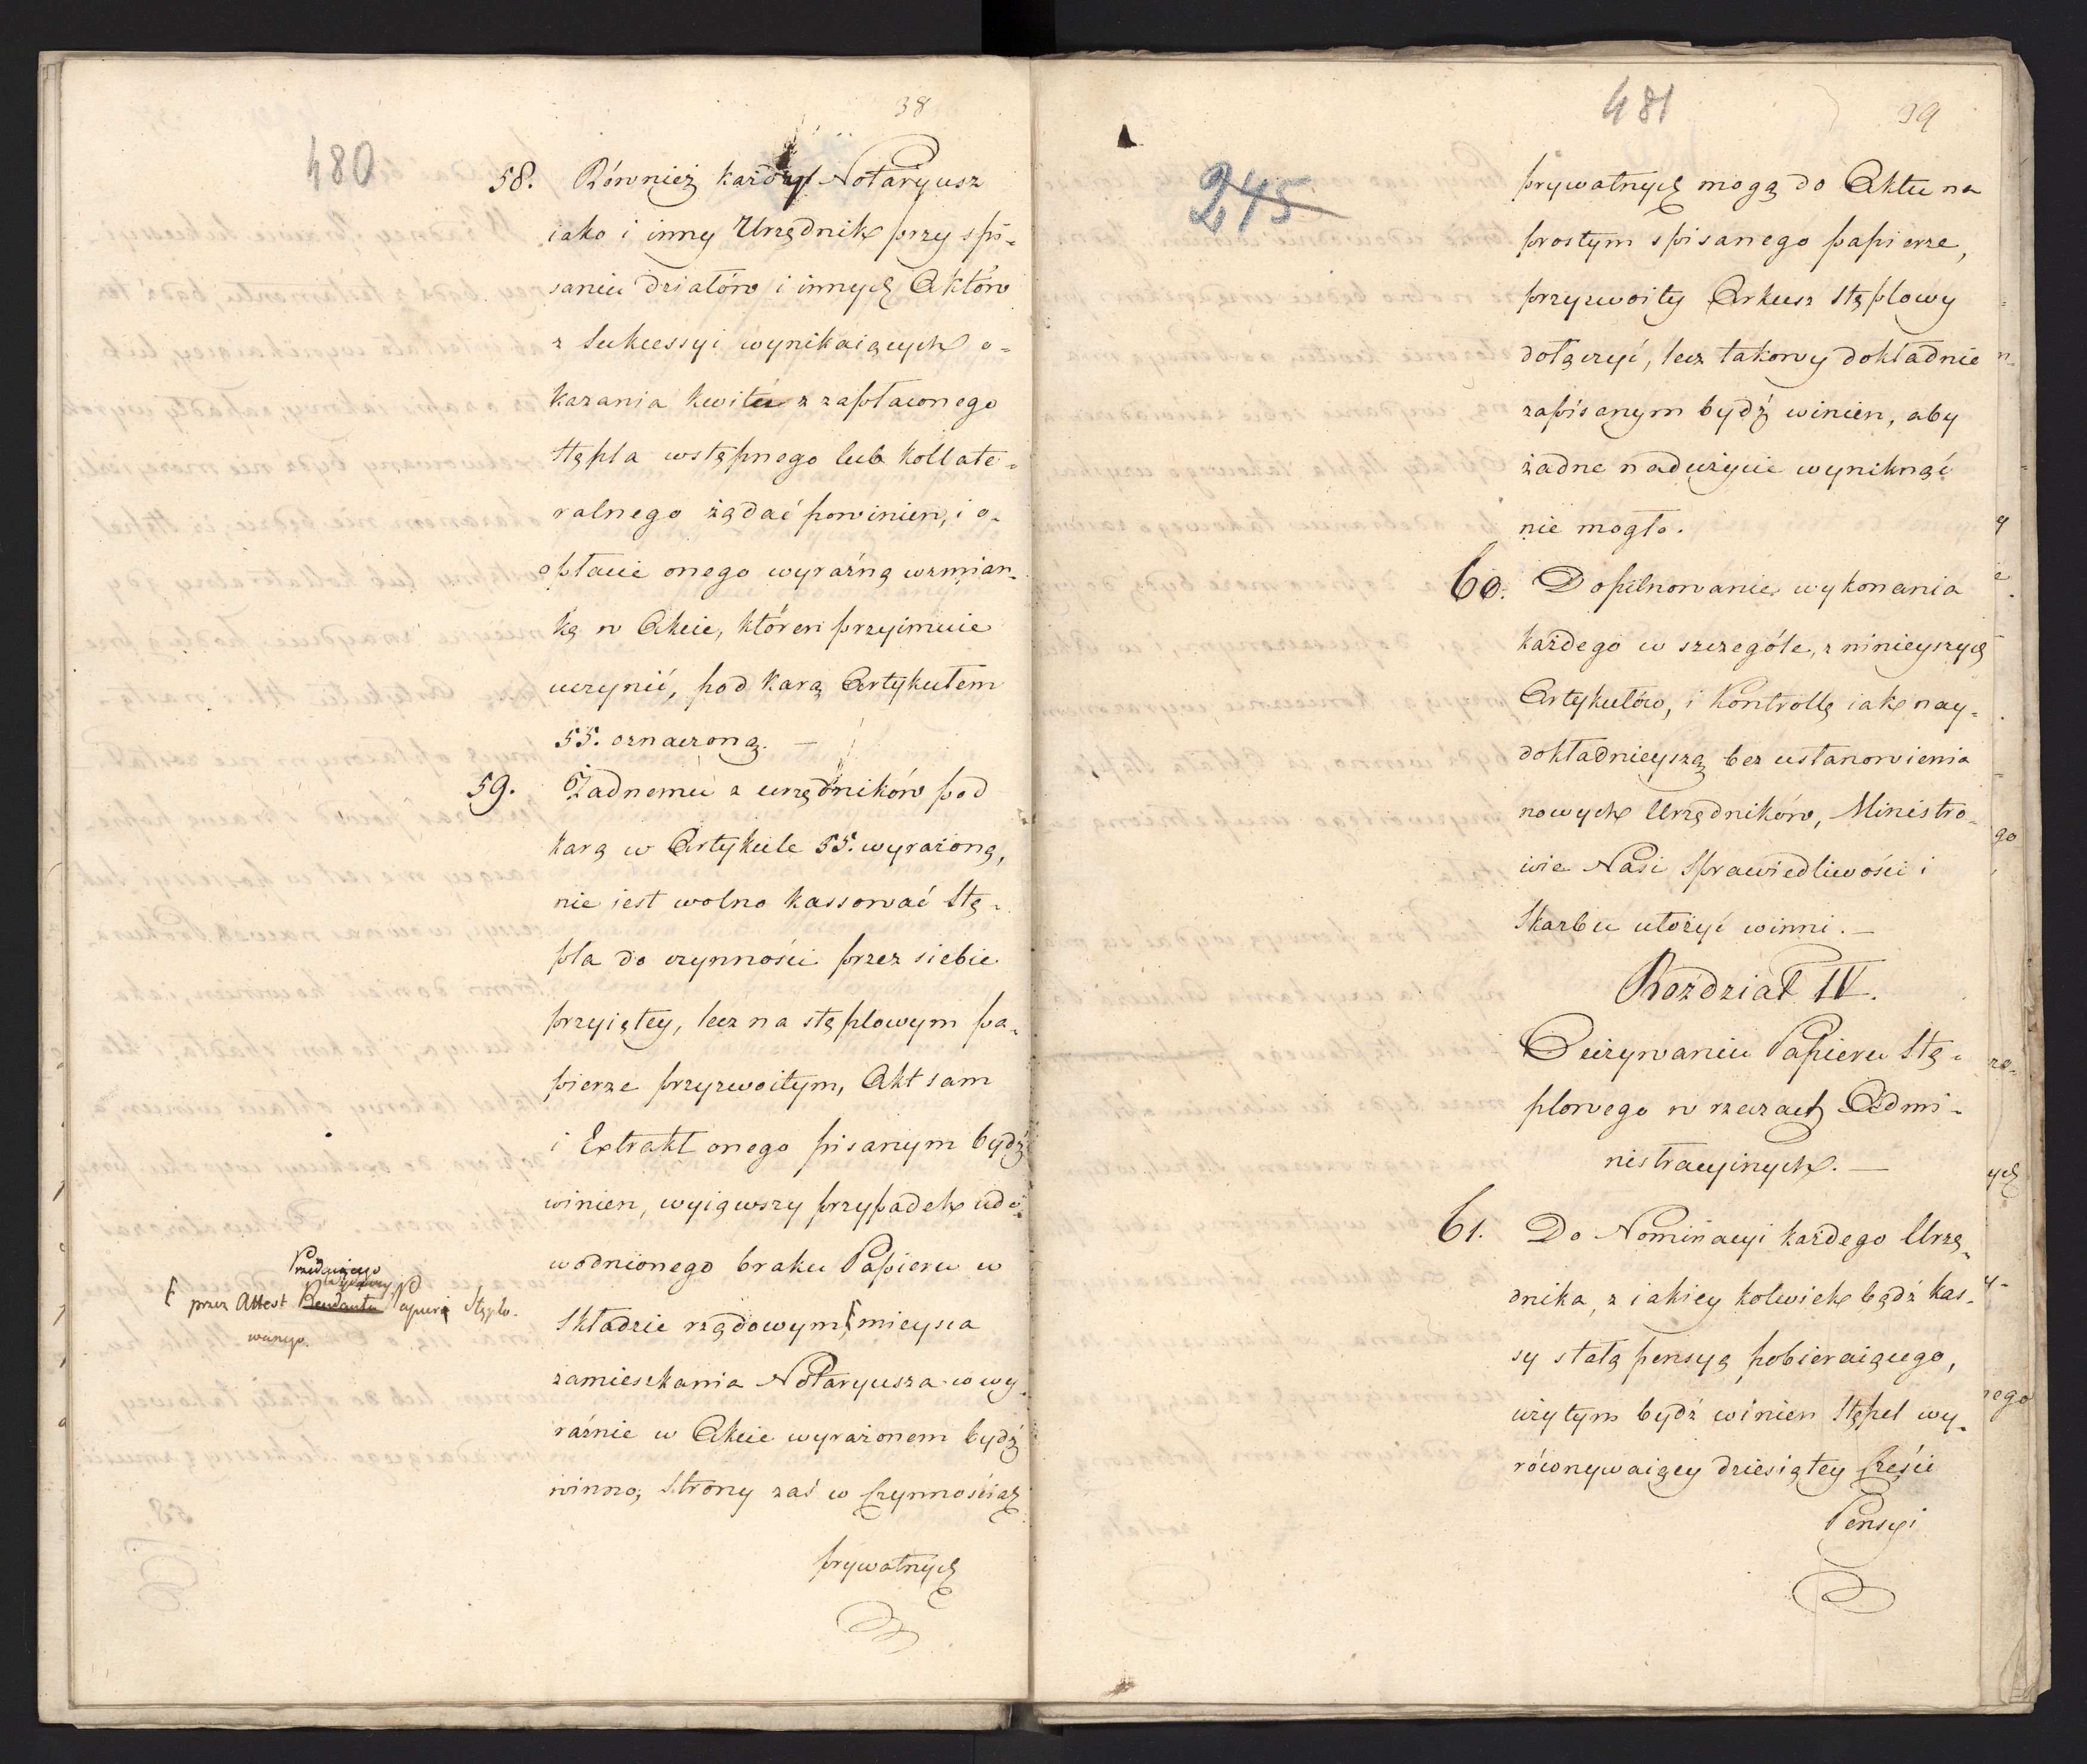 38
480
58. Również każdy Notaryusz
iako i inny Urzędnik przy spi-
saniu działów i innych Aktów
z Sukcessyi wynikaiących o-
kazania kwitu z zapłaconego
stępla wstępnego lub kollate-
ralnego żądać powinien, i o-
opłacie onego wyraźną wzmian-
kę w Akcie, któren przyimuie
uczynić, pod karą Artykułem
55. oznaczoną. —
59. Żadnemu z urzędników pod
karą w Artykule 55. wyrażoną,
nie iest wolno kassować Stę-
pla do czynności przez siebie
przyiętey, lecz na stęplowym pa-
pierze przyzwoitym, Akt sam
i Extrakt onego pisanym bydź
winien, wyiąwszy przypadek udo-
wodnionego braku Papieru w
Składzie rządowym mieysca
zamieszkania Notaryusza co wy-
raźnie w Akcie wyrażonem bydź
winno, Strony zaś w Czynnościach
prywatnych
Przedaiącego
przez Attest Rendanta Papieru Stęplo-
wanego.
481
39
245
prywatnych mogą do Aktu na
prostym spisanego papierze,
przyzwoity Arkusz Stęplowy
dołączyć, lecz takowy dokładnie
zapisanym bydź winien, aby
żadne nadużycie wyniknąć
nie mogło.
60. Dopilnowanie wykonania
każdego w szczególe, z ninieyszych
Artykułów, i Kontrollę iak nay-
dokładnieyszą bez ustanowienia
nowych Urzędników, Ministro-
wie Nasi Sprawiedliwości i
Skarbu ułożyć winni. —
Rozdział IV.
O używaniu Papieru Stę-
plowego w rzeczach Admi-
nistracyinych. —
61. Do Nominacyi każdego Urzę-
dnika, z iakiey kolwiek bądź kas-
sy stałą pensyą pobieraiącego,
użytym bydź winien Stępel wy-
równywaiący dziesiątey Części
Pensyi